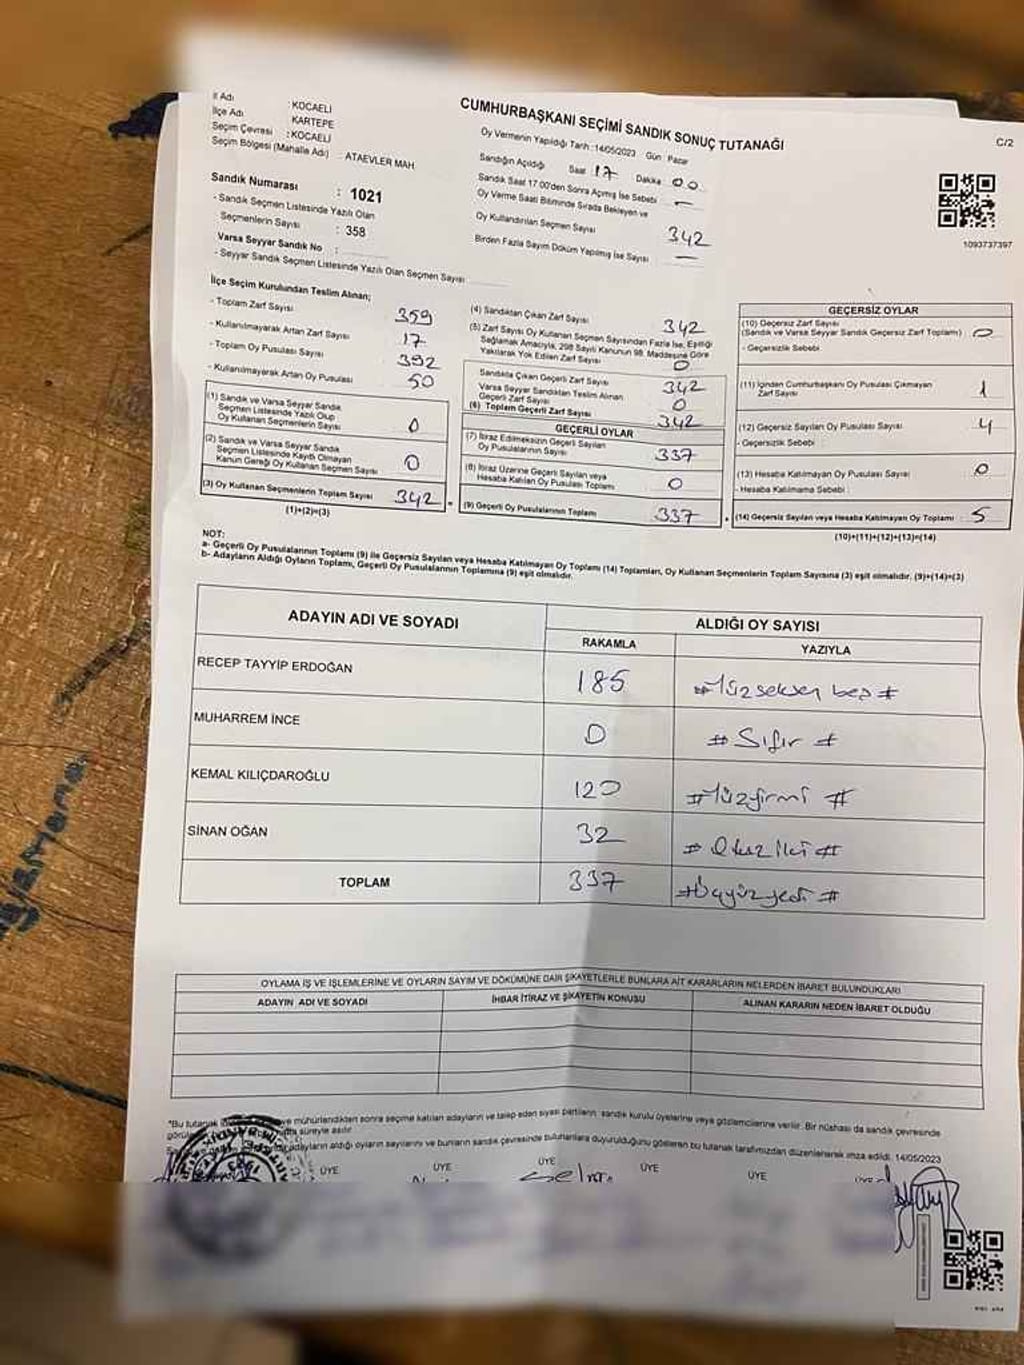 İl Adı : KOCAELİ
İlçe Adı KARTEPE
Seçim Çevresi : KOCAELİ
Seçim Bölgesi (Mahalle Adı) : ATAEVLER MAH.
CUMHURBAŞKANI SEÇİMİ SANDIK SONUÇ TUTANAĞI
C/2
Oy Vermenin Yapıldığı Tarih : 14/05/2023 Gün Pazar
Sandığın Açıldığı Saat 17 Dakika 00
Sandık Saat 17:00'den Sonra Açılmış İse Sebebi —
Oy Verme Saati Bitiminde Sırada Bekleyen ve
Oy Kullandırılan Seçmen Sayısı 342
Birden Fazla Sayım Döküm Yapılmış İse Sayısı —
1093737397
Sandık Numarası : 1021
- Sandık Seçmen Listesinde Yazılı Olan
Seçmenlerin Sayısı : 358
Varsa Seyyar Sandık No :
- Seyyar Sandık Seçmen Listesinde Yazılı Olan Seçmen Sayısı
İlçe Seçim Kurulundan Teslim Alınan;
- Toplam Zarf Sayısı 359
- Kullanılmayarak Artan Zarf Sayısı 17
- Toplam Oy Pusulası Sayısı 392
- Kullanılmayarak Artan Oy Pusulası 50
(1) Sandık ve Varsa Seyyar Sandık
Seçmen Listesinde Yazılı Olup
Oy Kullanan Seçmenlerin Sayısı 0
(2) Sandık ve Varsa Seyyar Sandık
Seçmen Listesinde Kayıtlı Olmayan
Kanun Gereği Oy Kullanan Seçmen Sayısı 0
(3) Oy Kullanan Seçmenlerin Toplam Sayısı 342
(1)+(2)=(3)
(4) Sandıktan Çıkan Zarf Sayısı 342
(5) Zarf Sayısı Oy Kullanan Seçmen Sayısından Fazla İse, Eşitliği
Sağlamak Amacıyla, 298 Sayılı Kanunun 98. Maddesine Göre
Yakılarak Yok Edilen Zarf Sayısı 0
Sandıkta Çıkan Geçerli Zarf Sayısı 342
Varsa Seyyar Sandıktan Teslim Alınan
Geçerli Zarf Sayısı 0
(6) Toplam Geçerli Zarf Sayısı 342
GEÇERLİ OYLAR
(7) İtiraz Edilmeksizin Geçerli Sayılan
Oy Pusulalarının Sayısı 337
(8) İtiraz Üzerine Geçerli Sayılan veya
Hesaba Katılan Oy Pusulası Toplamı 0
(9) Geçerli Oy Pusulalarının Toplamı 337
GEÇERSİZ OYLAR
(10) Geçersiz Zarf Sayısı
(Sandık ve Varsa Seyyar Sandık Geçersiz Zarf Toplamı) 0
- Geçersizlik Sebebi
(11) İçinden Cumhurbaşkanı Oy Pusulası Çıkmayan
Zarf Sayısı 1
(12) Geçersiz Sayılan Oy Pusulası Sayısı : 4
- Geçersizlik Sebebi
(13) Hesaba Katılmayan Oy Pusulası Sayısı : 0
- Hesaba Katılmama Sebebi :
(14) Geçersiz Sayılan veya Hesaba Katılmayan Oy Toplamı : 5
(10)+(11)+(12)+(13)=(14)
NOT:
a- Geçerli Oy Pusulalarının Toplamı (9) ile Geçersiz Sayılan veya Hesaba Katılmayan Oy Toplamı (14) Toplamları, Oy Kullanan Seçmenlerin Toplam Sayısına (3) eşit olmalıdır. (9)+(14)=(3)
b- Adayların Aldığı Oyların Toplamı, Geçerli Oy Pusulalarının Toplamına (9) eşit olmalıdır.
ADAYIN ADI VE SOYADI ALDIĞI OY SAYISI
RAKAMLA YAZIYLA
RECEP TAYYİP ERDOĞAN 185 #Yüzseksen beş#
MUHARREM İNCE 0 # Sıfır #
KEMAL KILIÇDAROĞLU 120 #Yüzyirmi #
SİNAN OĞAN 32 # Otuz iki #
TOPLAM 337 #Üçyüzyedi #
OYLAMA İŞ VE İŞLEMLERİNE VE OYLARIN SAYIM VE DÖKÜMÜNE DAİR ŞİKAYETLERLE BUNLARA AİT KARARLARIN NELERDEN İBARET BULUNDUKLARI
ADAYIN ADI VE SOYADI İHBAR İTİRAZ VE ŞİKAYETİN KONUSU ALINAN KARARIN NEDEN İBARET OLDUĞU
*Bu tutanak ve mühürlendikten sonra seçime katılan adayların ve talep eden siyasi partilerin sandık kurulu üyelerine veya gözlemcilerine verilir. Bir nüshası da sandık çevresinde
süreyle asılır.
adayların aldığı oyların sayılarını ve bunların sandık çevresinde bulunanlara duyurulduğunu gösteren bu tutanak tarafımızdan düzenlenerek imza edildi. 14/05/2023
ÜYE ÜYE ÜYE ÜYE ÜYE